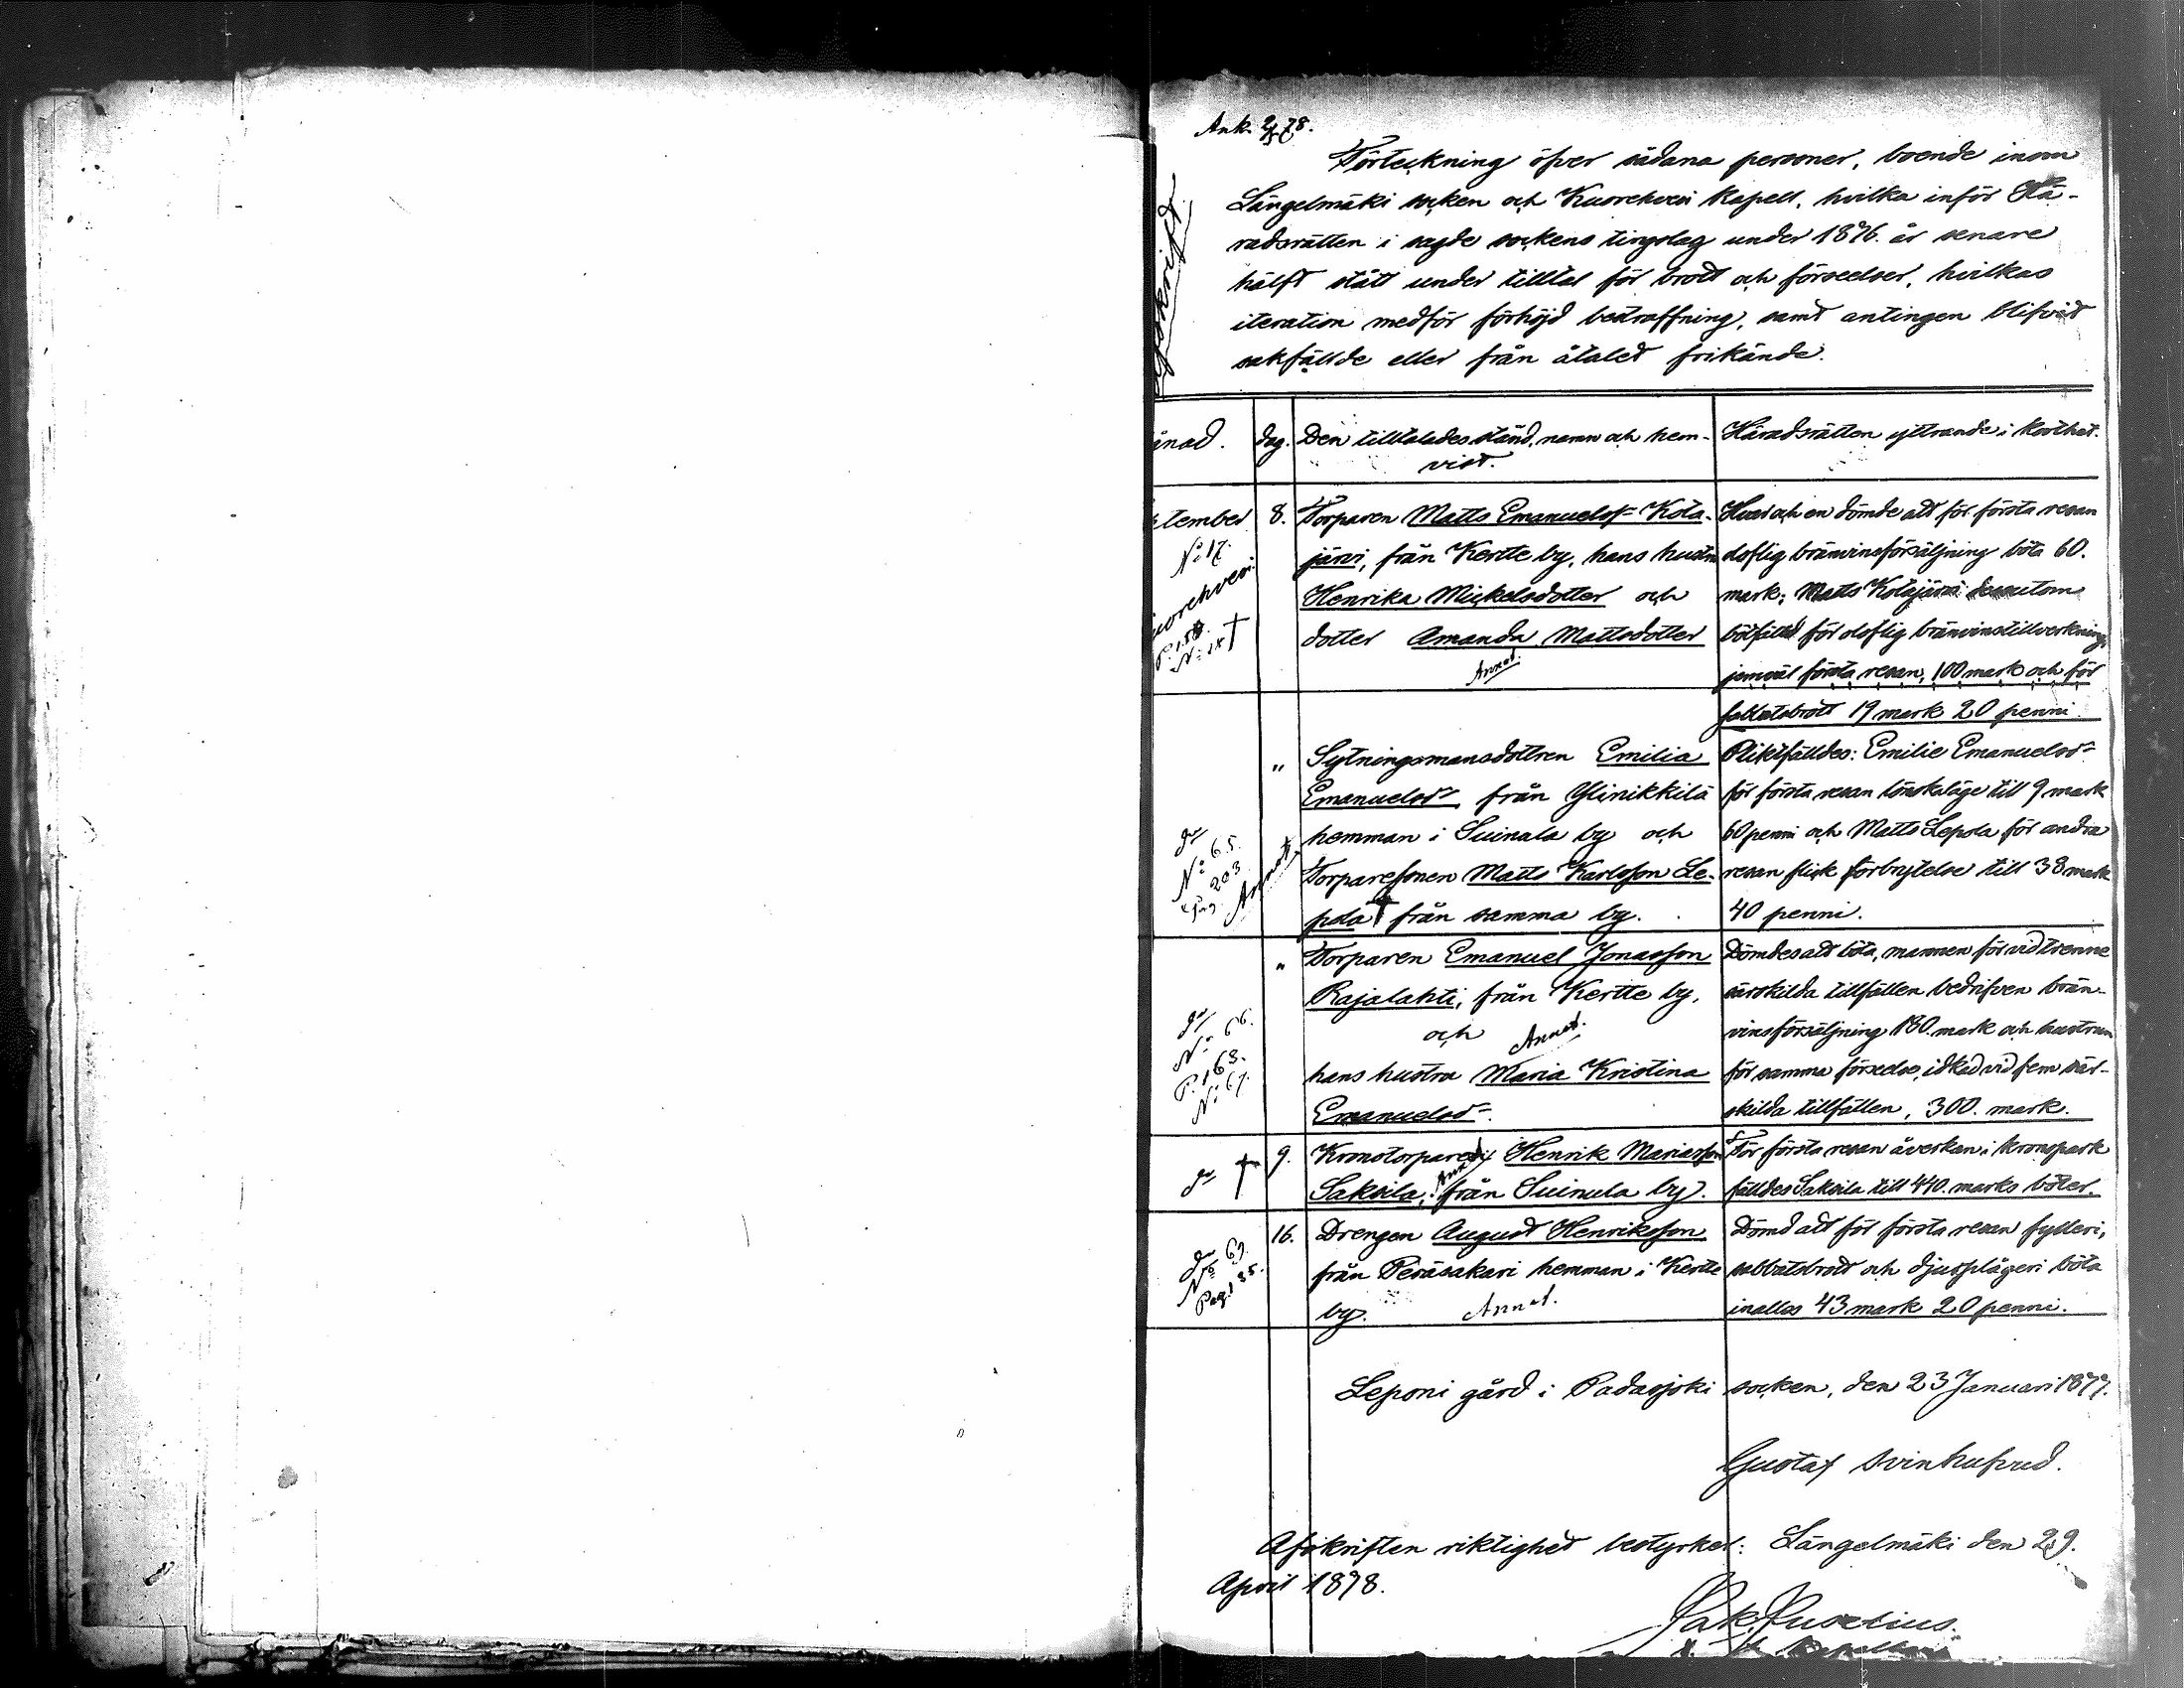 Ank. 2/5 78.
Förteckning öfver sådana personer, boende inom
Längelmäki socken och Kuorehvesi Kapell, hvilka inför Hä-
radsrätten i sagde sockens tingslag under 1876 år senare
hälft stått under tilltal för brott och förseelser, hvilkas
iteration medför förhöjd bestraffning, samt antingen blifvit
sakfällde eller från åtalet frikände.
ånad. dag. Den tilltalades stånd, namn och hem- Häradsrätten yttrande i korthet.
vist.
tember 8. Torparen Matts Emanuelss= Kota- Hvar och en dömde att för första resan
N:o 17. järvi, från Kertte by, hans hustru olaflig bränvinsförsäljning böta 60.
uorehvesi Henrika Mickelsdotter och mark; Matts Kotajärvi dessutom
dotter Amanda Mattsdotter bötfälld för olaflig bränvinstillverkning,
Annot. jemväl första resan, 100 mark och för
sabbatsbrott 19 mark 20 penni.
" Sytningsmansdottren Emilia Pliktfälldes: Emilie Emanuelsd=
Emanuelsd= från Ylinikkilä för första resan lönskaläge till 9 mark
N:o 65. hemman i Suinala by och 60 penni och Matts Lepola för andra
pag 203 Annot. Torparesonen Matts Karlsson Le- resan flisk förbrytelse till 38 mark
pola † från samma by. 40 penni.
" Torparen Emanuel Jonasson Dömdes att böta, mannen för vid trenne
Rajalahti, från Kertte by, särskilda tillfällen bedrifven brän-
N:o 66. och Annot. vinsförsäljning 180 mark och hustrun
P. 168. hans hustru Maria Kristina för samma förseelse, idkad vid fem sär-
N:o 67. Emanuelsd=. skilda tillfällen, 300. mark.
† 9. Kronotorparen Henrik Mariasson För första resan åverkan i kronopark
Saksila, Annot. från Suinula by. fälldes Saksila till 440. marks böter.
16. Drengen August Henriksson Dömd att för första resan fylleri,
N:o 69. från Peräsakari hemman i Kertte sabbatsbrott och djurplågeri böta
Pag. 185. by. Annot. inalles 43 mark 20 penni.
Seponi gård i Padasjoki socken, den 23 Januari 1877.
Gustaf Svinhufvud.
Afskriften riktighet bestyrket: Längelmäki den 29.
April 1878.